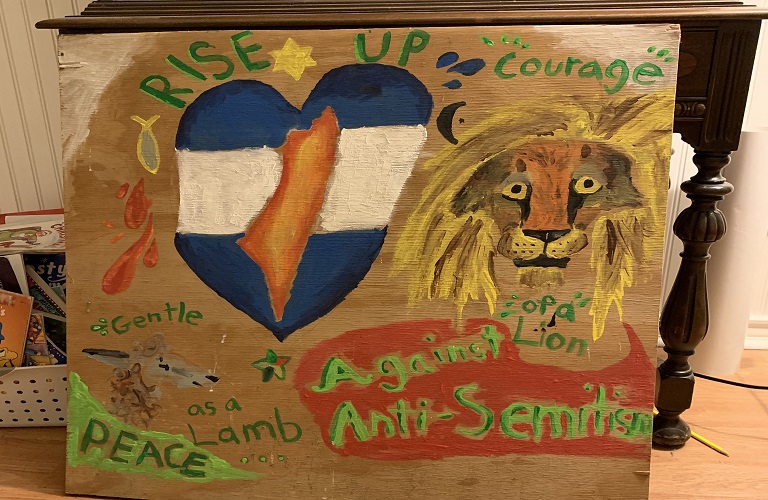 RISE UP
Courage
of a
Lion
Gentle
as a
Lamb
Against
Anti-Semitism
PEACE